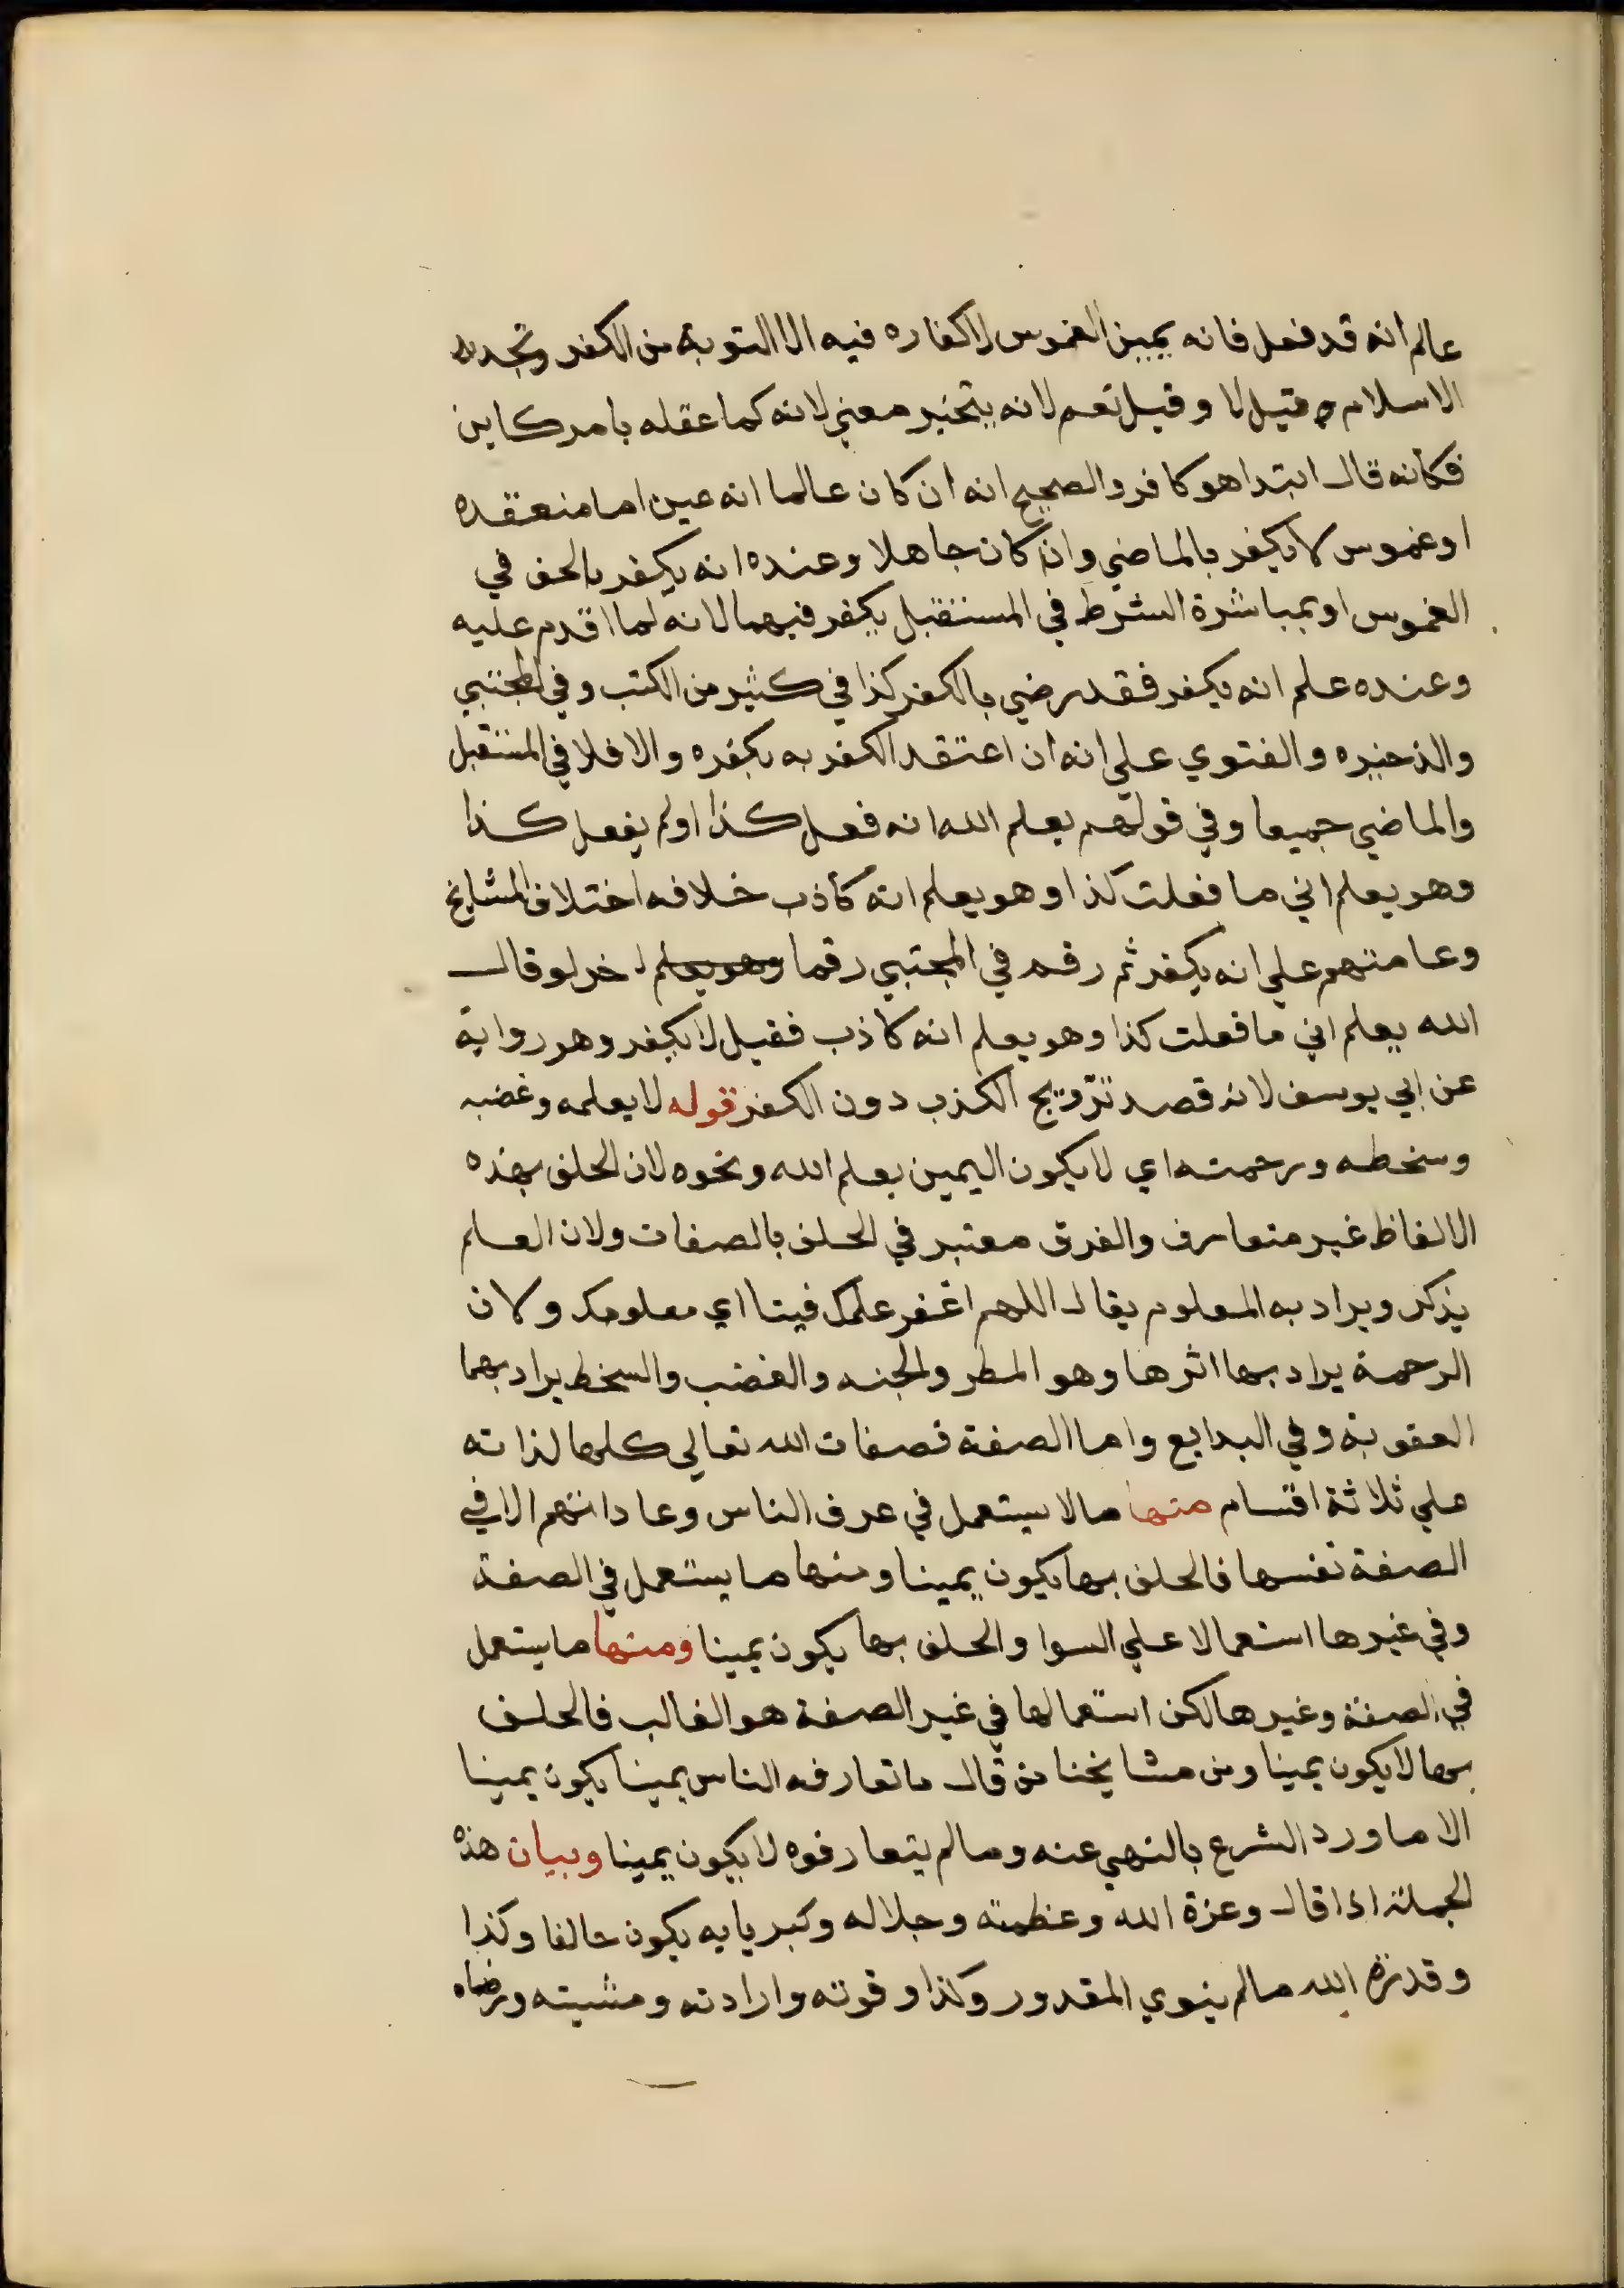 عالم انه قد فعل فانه يمين الغموس لا كفاره فيه الا التوبة من الكفر وتجديد
الاسلام وقيل لا وقيل نعم لانه يتخير معني لانه كما عقله بامر كاين
فكانه قال ابتدا هو كافر والصحيح انه ان كان عالما انه يمين اما منعقده
او غموس لا يكفر بالماضي وان كان جاهلا وعنده انه يكفر بالحف في
الغموس او بمباشرة الشرط في المستقبل يكفر فيهما لانه لما اقدم عليه
وعنده علم انه يكفر فقد رضي بالكفر كذا في كثير من الكتب وفي المجتبي
والذخيره والفتوي علي انه ان اعتقد الكفر به يكفره والا فلا في المستقبل
والماضي جميعا وفي قولهم يعلم الله انه فعل كذا او لم يفعل كذا
وهو يعلم اني ما فعلت كذا وهو يعلم انه كاذب خلافه اختلاف المشايخ
وعامتهم علي انه يكفر ثم رقم في المجتبي رقما وهو يعلم اخر لو قال
الله يعلم اني ما فعلت كذا وهو يعلم انه كاذب فقيل لا يكفر وهو رواية
عن ابي يوسف لانه قصد ترويج الكذب دون الكفر قوله لا يعلمه وغضبه
وسخطه ورحمته اي لا يكون اليمين بعلم الله ونحوه لان الحلف بهذه
الالفاظ غير متعارف والفرق معتبر في الحلف بالصفات ولان العلم
يذكر ويراد به المعلوم يقال اللهم اغفر علمك فينا اي معلومك ولان
الرحمة يراد بها اثرها وهو المطر والجنه والغضب والسخط يراد بهما
العقوبة وفي البدايع واما الصفة فصفات الله تعالي كلها لذاته
علي ثلاثة اقسام منها ما لا يستعمل في عرف الناس وعاداتهم الا في
الصفة نفسها فالحلف بها يكون يمينا ومنها ما يستعمل في الصفة
وفي غيرها استعمالا علي السوا والحلف بها يكون يمينا ومنها ما يستعمل
في الصفة وغيرها لكن استعمالها في غير الصفة هو الغالب فالحلف
بها لا يكون يمينا ومن مشايخنا من قال ما تعارفه الناس يمينا يكون يمينا
الا ما ورد الشرع بالنهي عنه وما لم يتعارفوه لا يكون يمينا وبيان هذه
الجملة اذا قال وعزة الله وعظمته وجلاله وكبريايه يكون حالفا وكذا
وقدرة الله ما لم ينوي المقدور وكذا وقوته وارادته ومشيته ورضاه